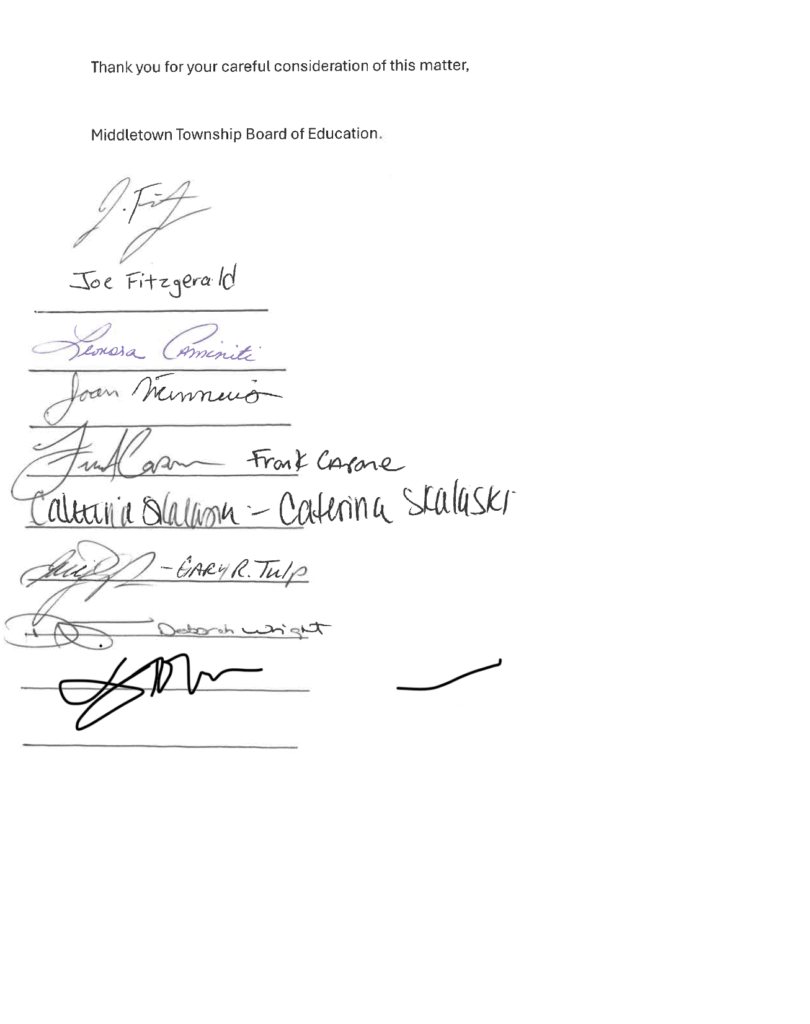 Thank you for your careful consideration of this matter,
Middletown Township Board of Education.
J. Fitz
Joe Fitzgerald
Leonora Caminiti
Joan Minnuies
Frank Capone Frank Capone
Caterina Skalaski - Caterina Skalaski
- GARY R. Tulp
Deborah Wright